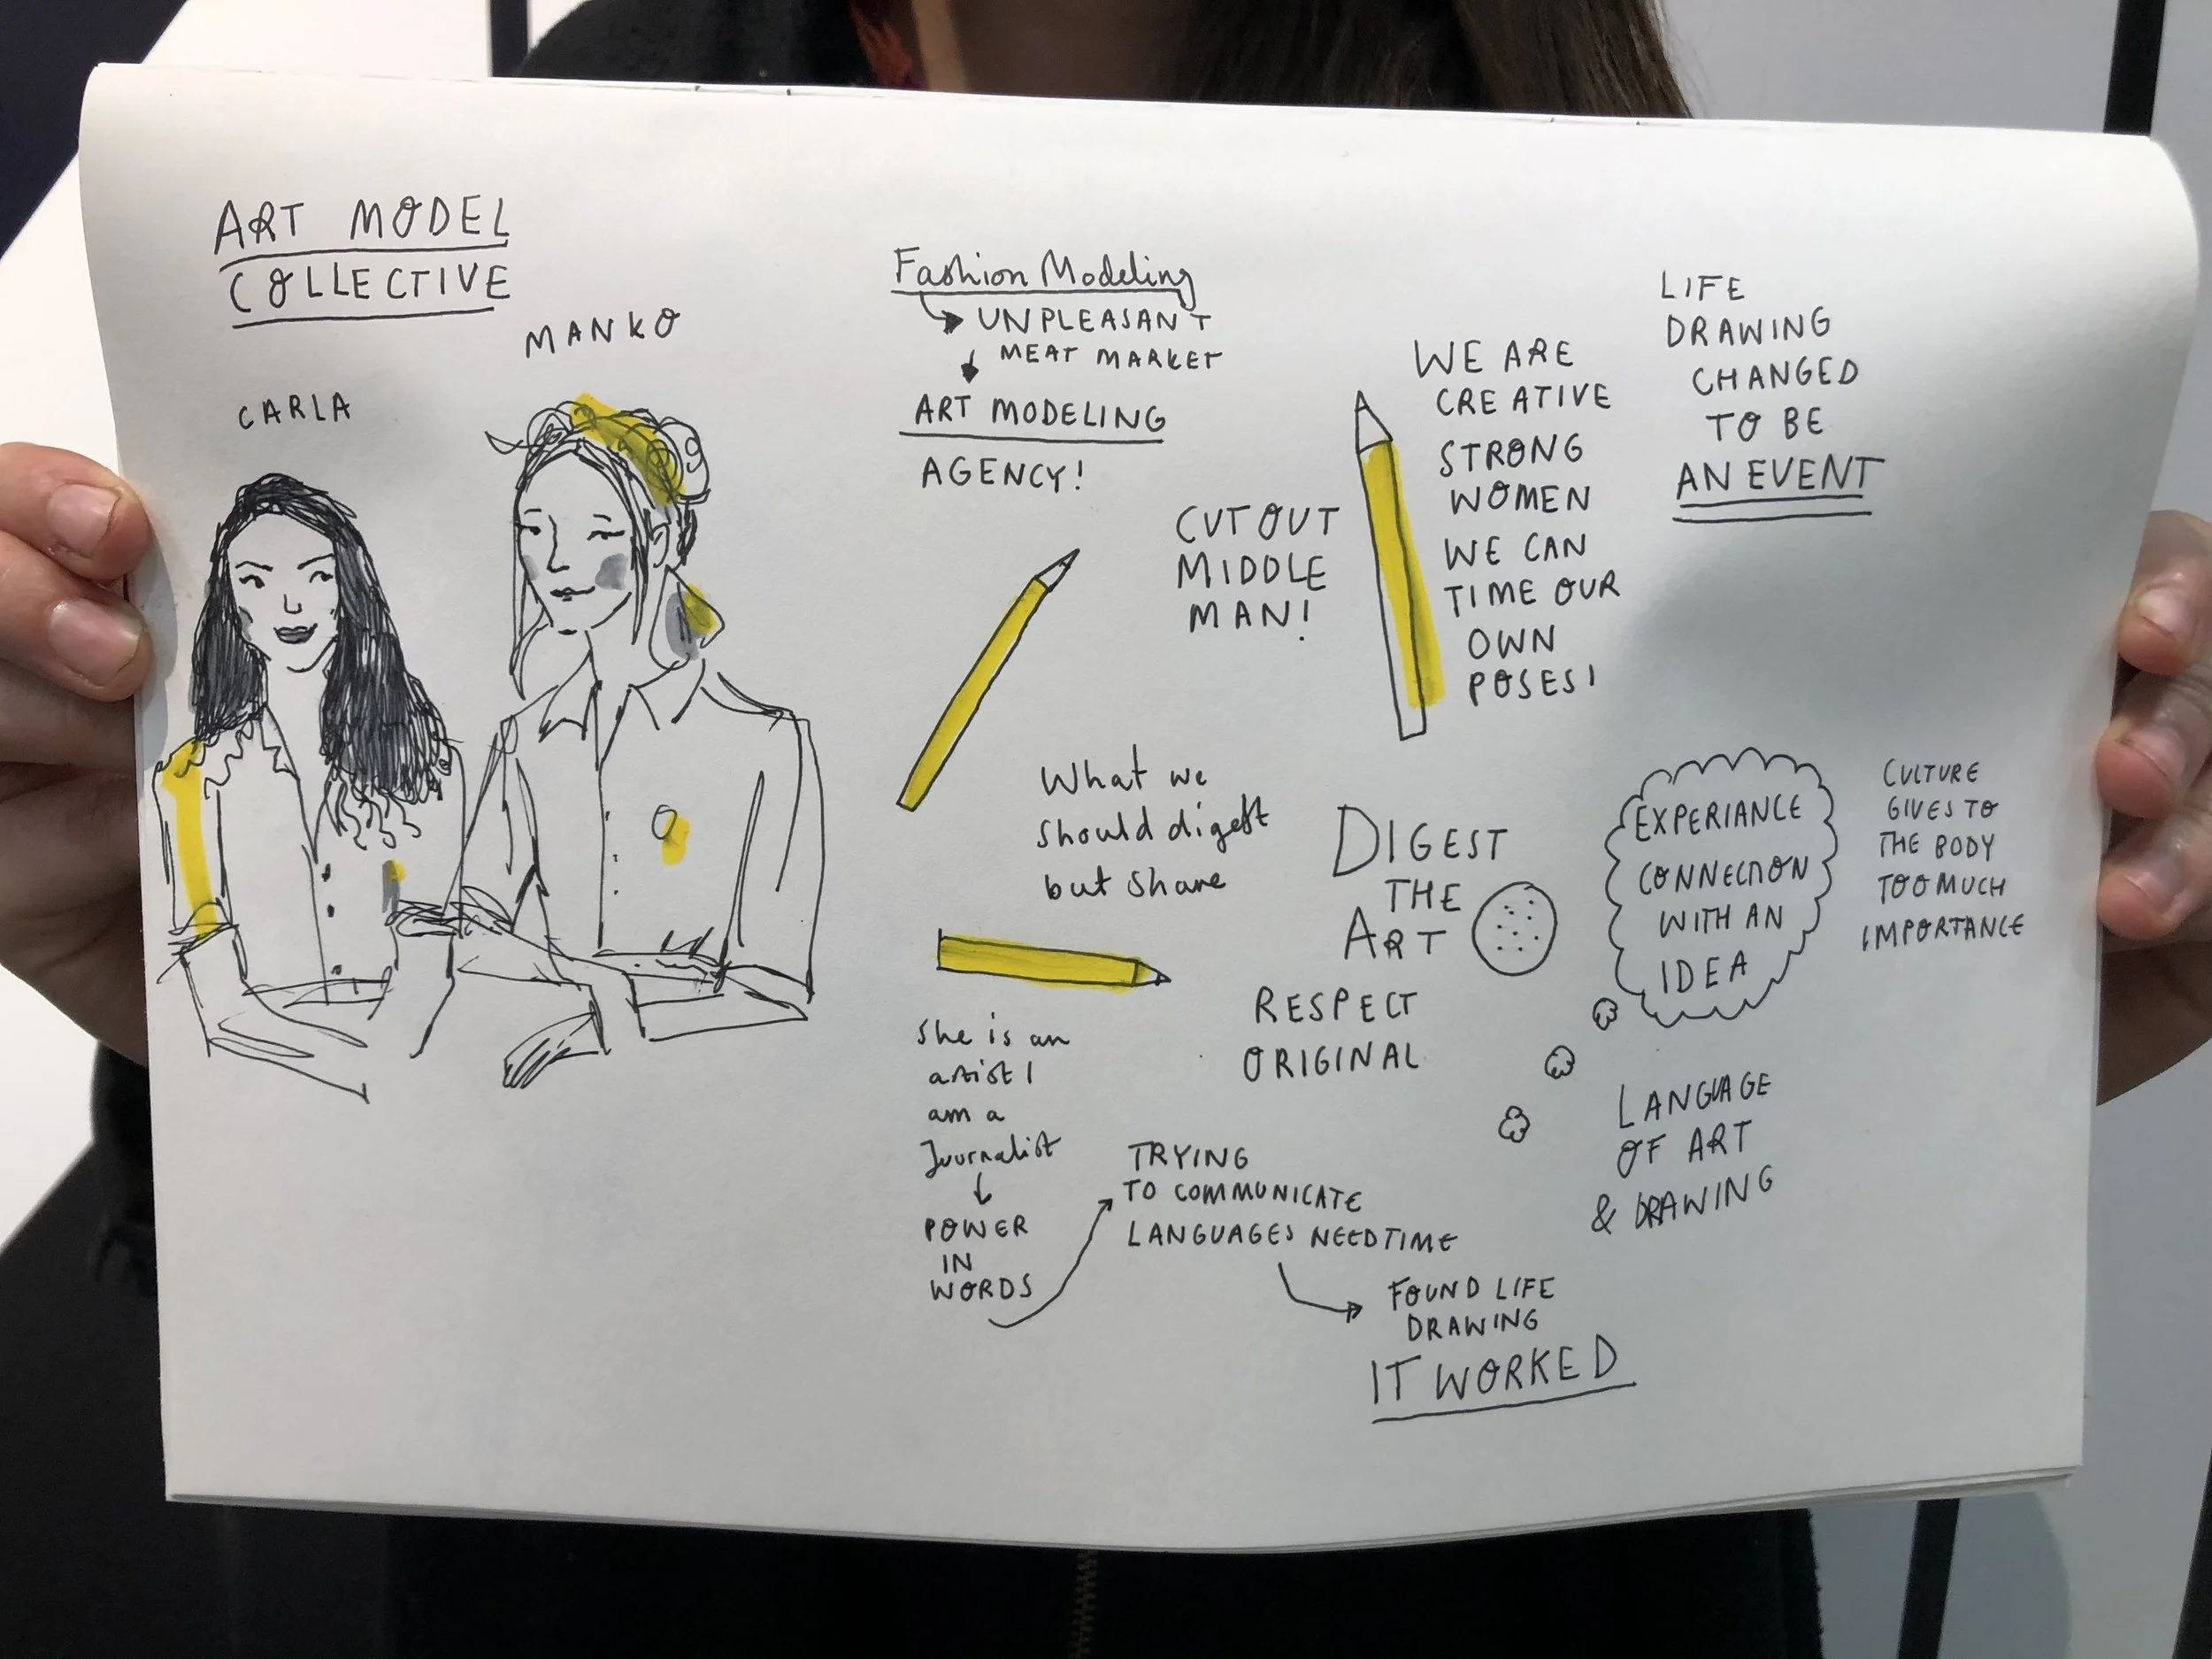 ART MODEL
COLLECTIVE
MANKO
CARLA
Fashion Modeling
UNPLEASANT
MEAT MARKET
ART MODELING
AGENCY!
CUT OUT
MIDDLE
MAN!
WE ARE
CREATIVE
STRONG
WOMEN
WE CAN
TIME OUR
OWN
POSES!
LIFE
DRAWING
CHANGED
TO BE
AN EVENT
What we
should digest
but share
DIGEST
THE
ART
RESPECT
ORIGINAL
EXPERIANCE
CONNECTION
WITH AN
IDEA
CULTURE
GIVES TO
THE BODY
TOO MUCH
IMPORTANCE
LANGUAGE
OF ART
& DRAWING
She is an
artist I
am a
Journalist
POWER
IN
WORDS
TRYING
TO COMMUNICATE
LANGUAGES NEED TIME
FOUND LIFE
DRAWING
IT WORKED